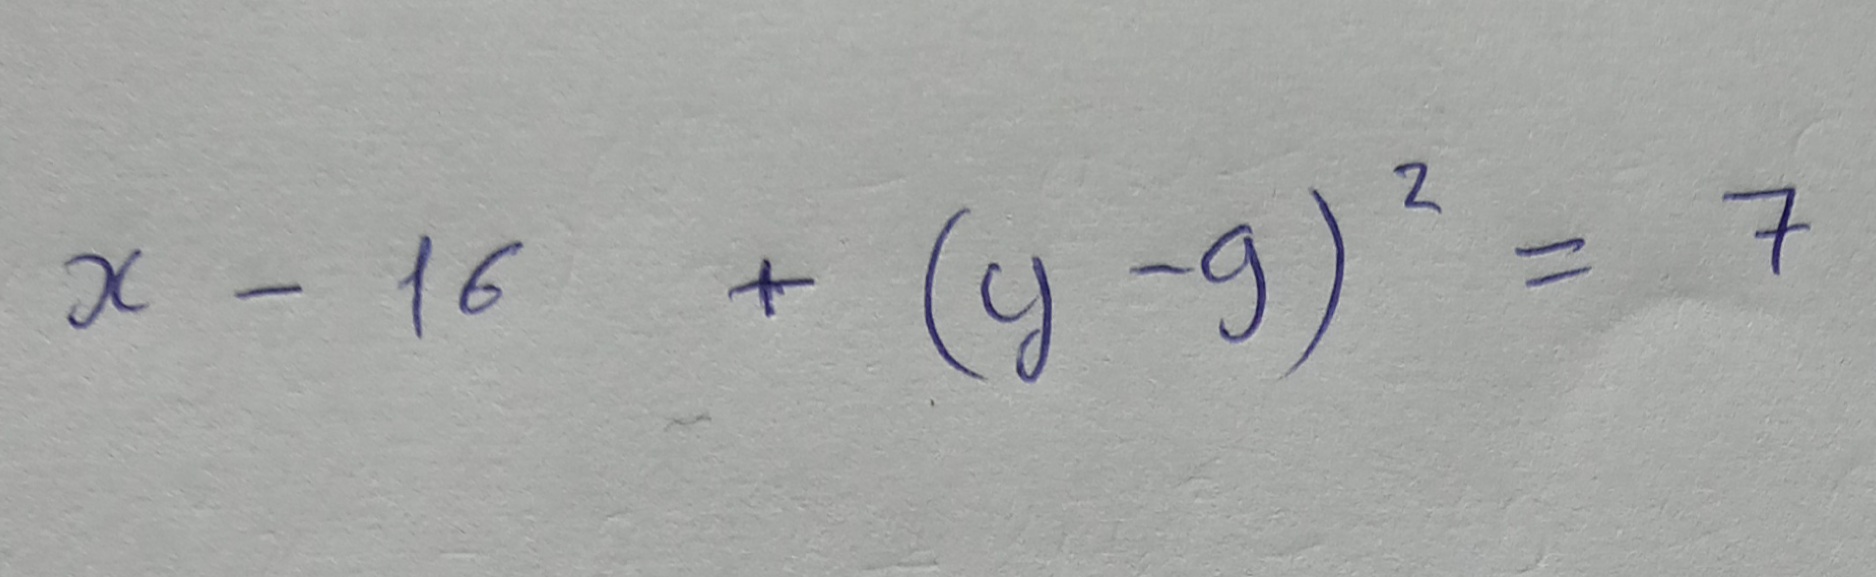 x - 16 + (y - 9)² = 7